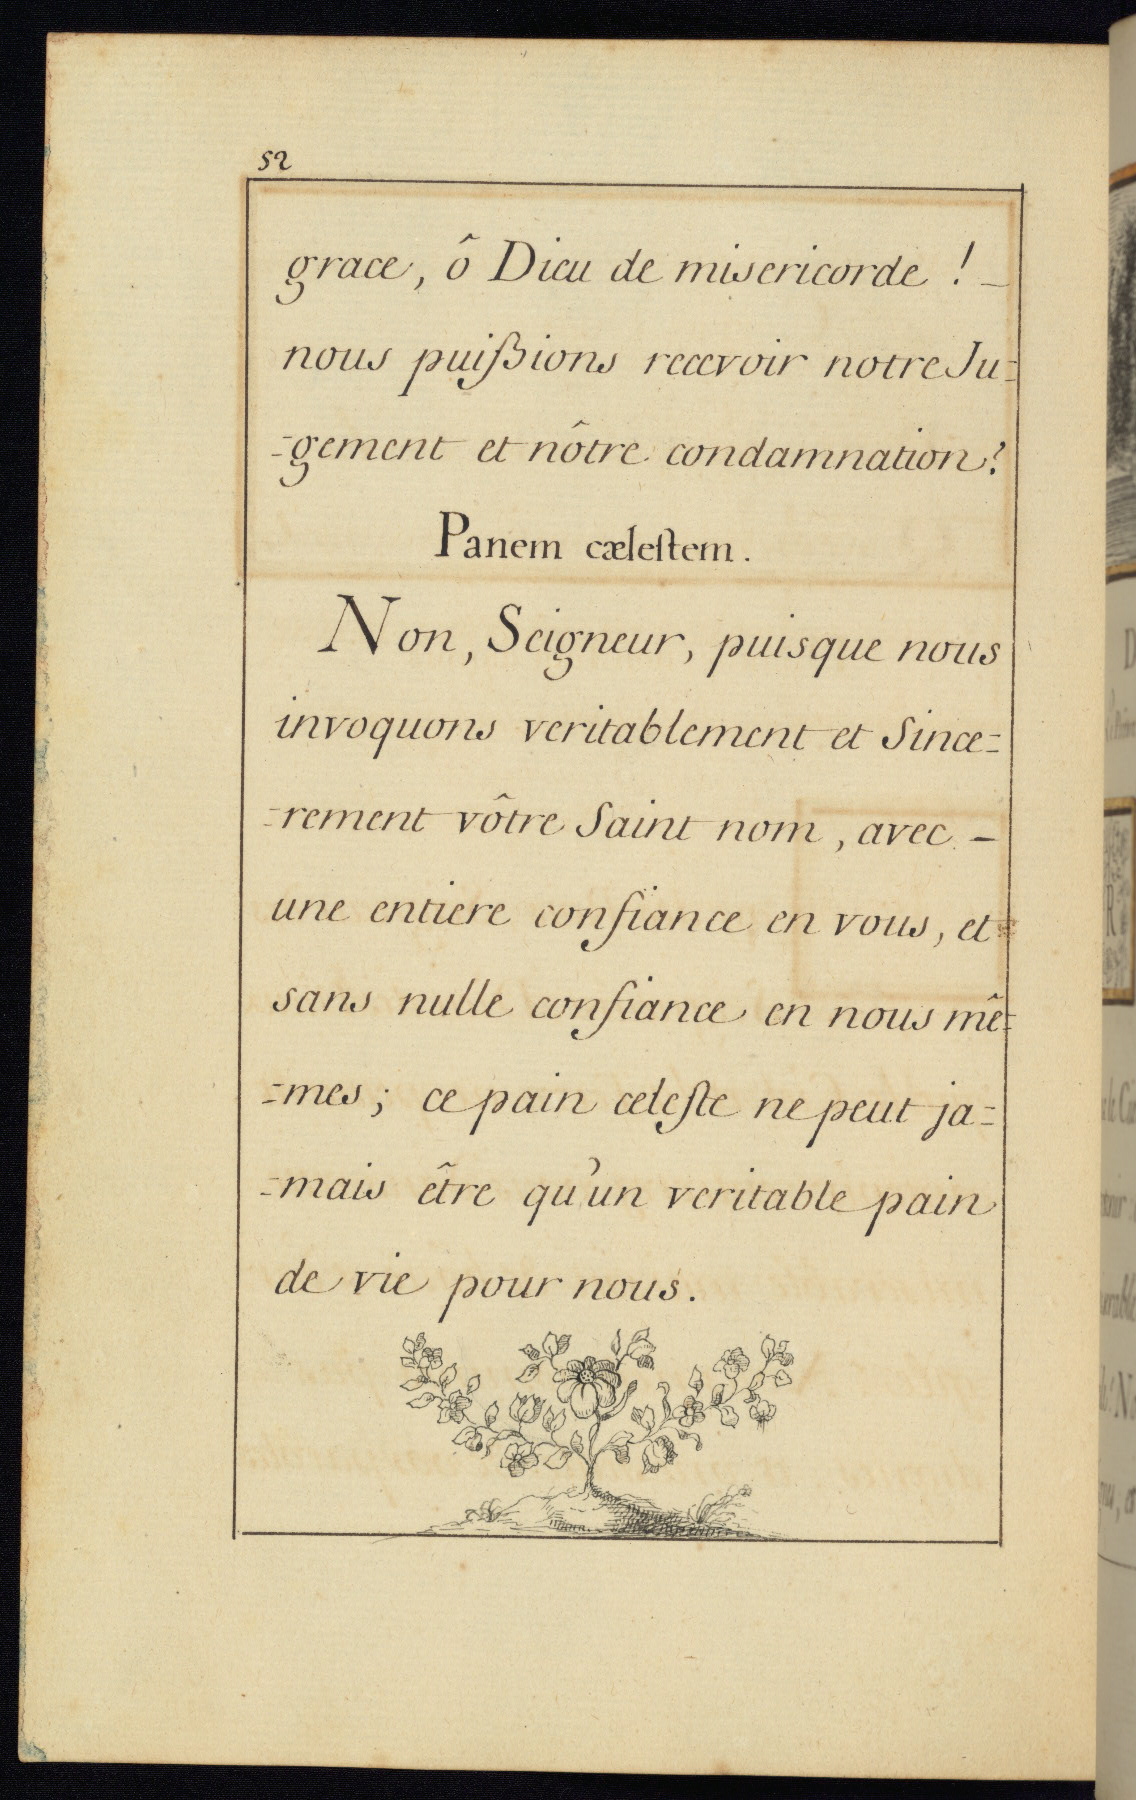 52
grace, ô Dieu de misericorde ! -
nous puißions recevoir notre Ju=
=gement et nôtre condamnation?
Panem cæleſtem.
Non, Seigneur, puisque nous
invoquons veritablement et Since=
=rement vôtre Saint nom, avec -
une entiere confiance en vous, et
sans nulle confiance en nous mê=
=mes; ce pain celeſte ne peut ja=
=mais être qu'un veritable pain
de vie pour nous.